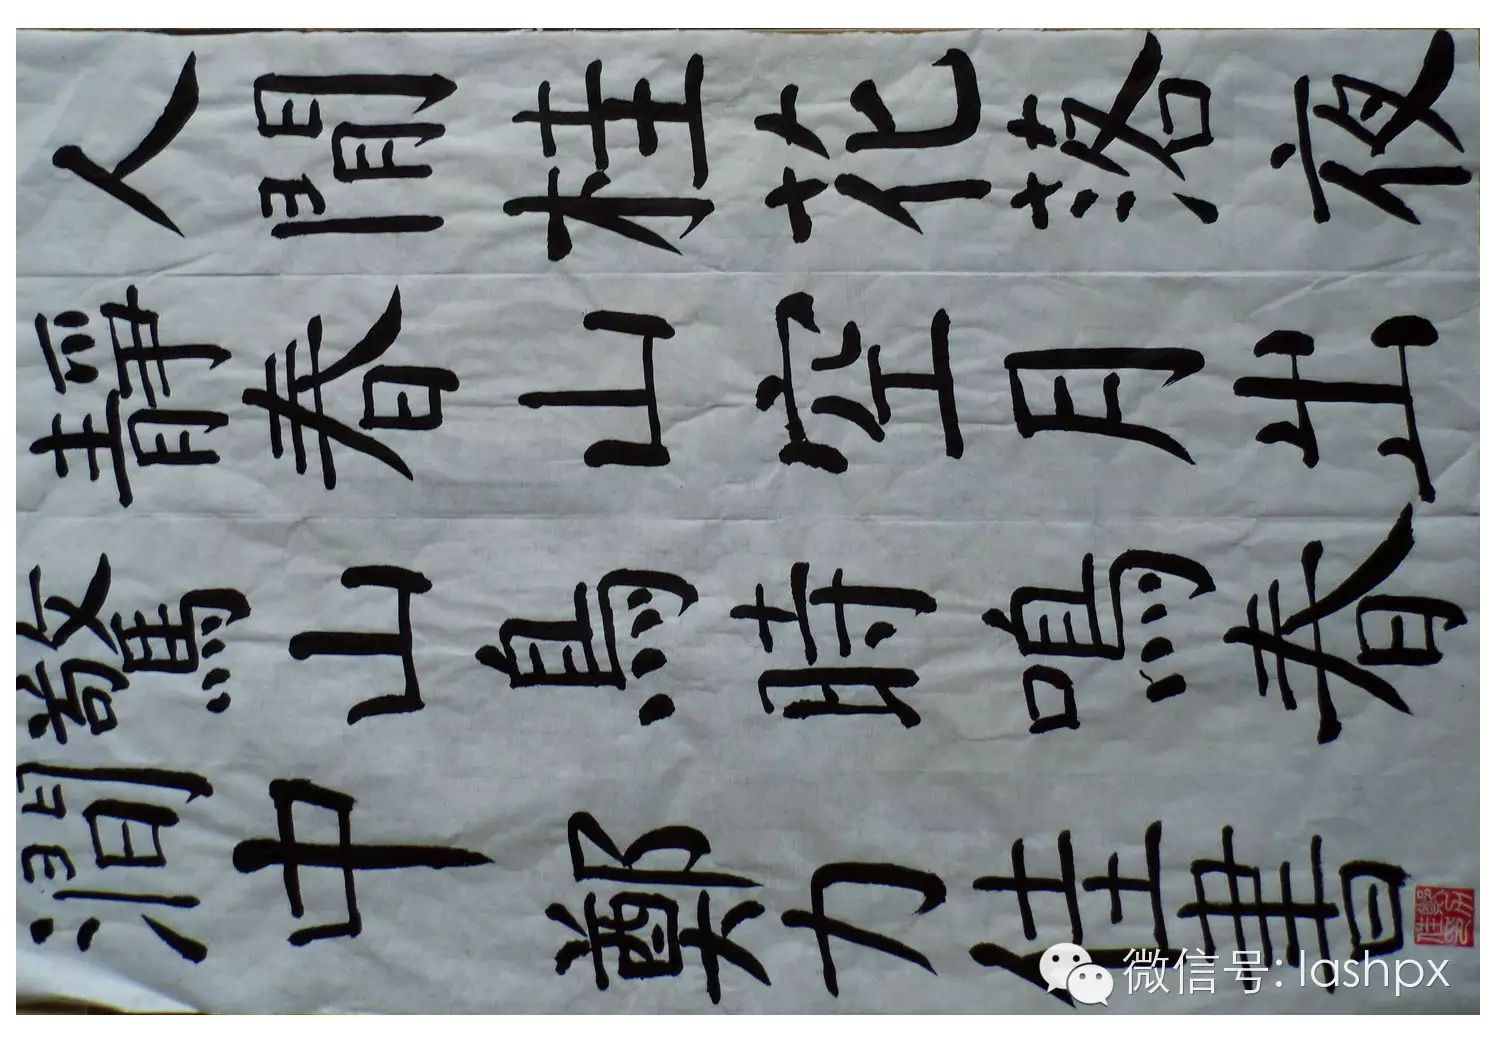 人間桂花落夜
靜春山空月出
驚山鳥時鳴春
澗中 鄭力佳書
微信号: lashpx